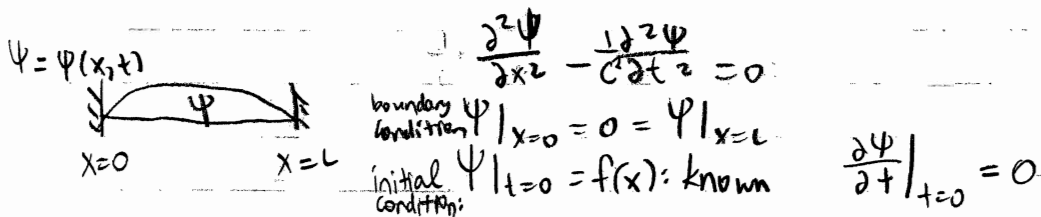 ψ = ψ(x,t)
ψ
x=0 x=L
∂²ψ/∂x² - 1/c² ∂²ψ/∂t² = 0
boundary condition ψ|x=0 = 0 = ψ|x=L
initial condition: ψ|t=0 = f(x): known ∂ψ/∂t|t=0 = 0